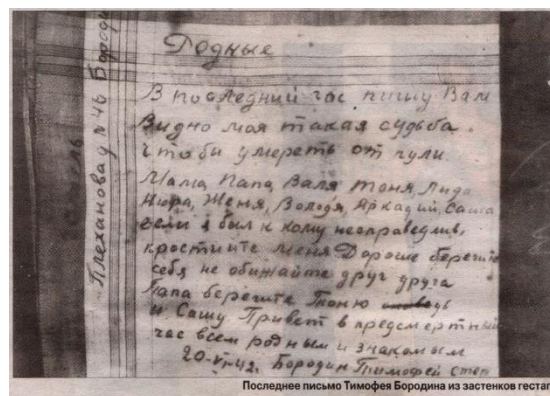 Плехановая у №46 Бороди
Родные
В последний час пишу Вам
Видно моя такая судьба.
Что бы умереть от пули.
Мама, Папа, Валя Тоня, Лида
Нюра, Женя, Володя, Аркадий, Саша
если я был к кому несправедлив,
простите меня Дорогие берегите
себя не обижайте друг друга
Папа берегите Тоню
и Сашу Привет в предсмертный
час всем родным и знакомым
20-VI-42. Бородин Тимофей Степ
Последнее письмо Тимофея Бородина из застенков гестап